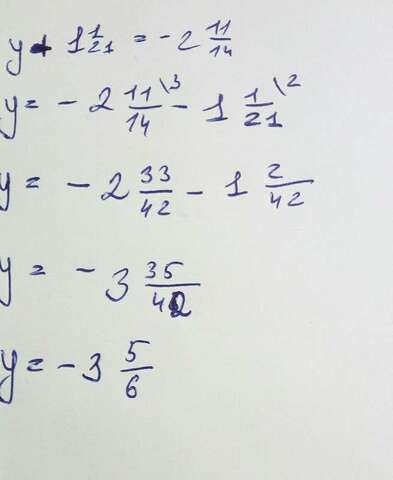 y + 1 1/21 = - 2 11/14
y = - 2 11/14 \3 - 1 1/21 \2
y = - 2 33/42 - 1 2/42
y = - 3 35/42
y = - 3 5/6